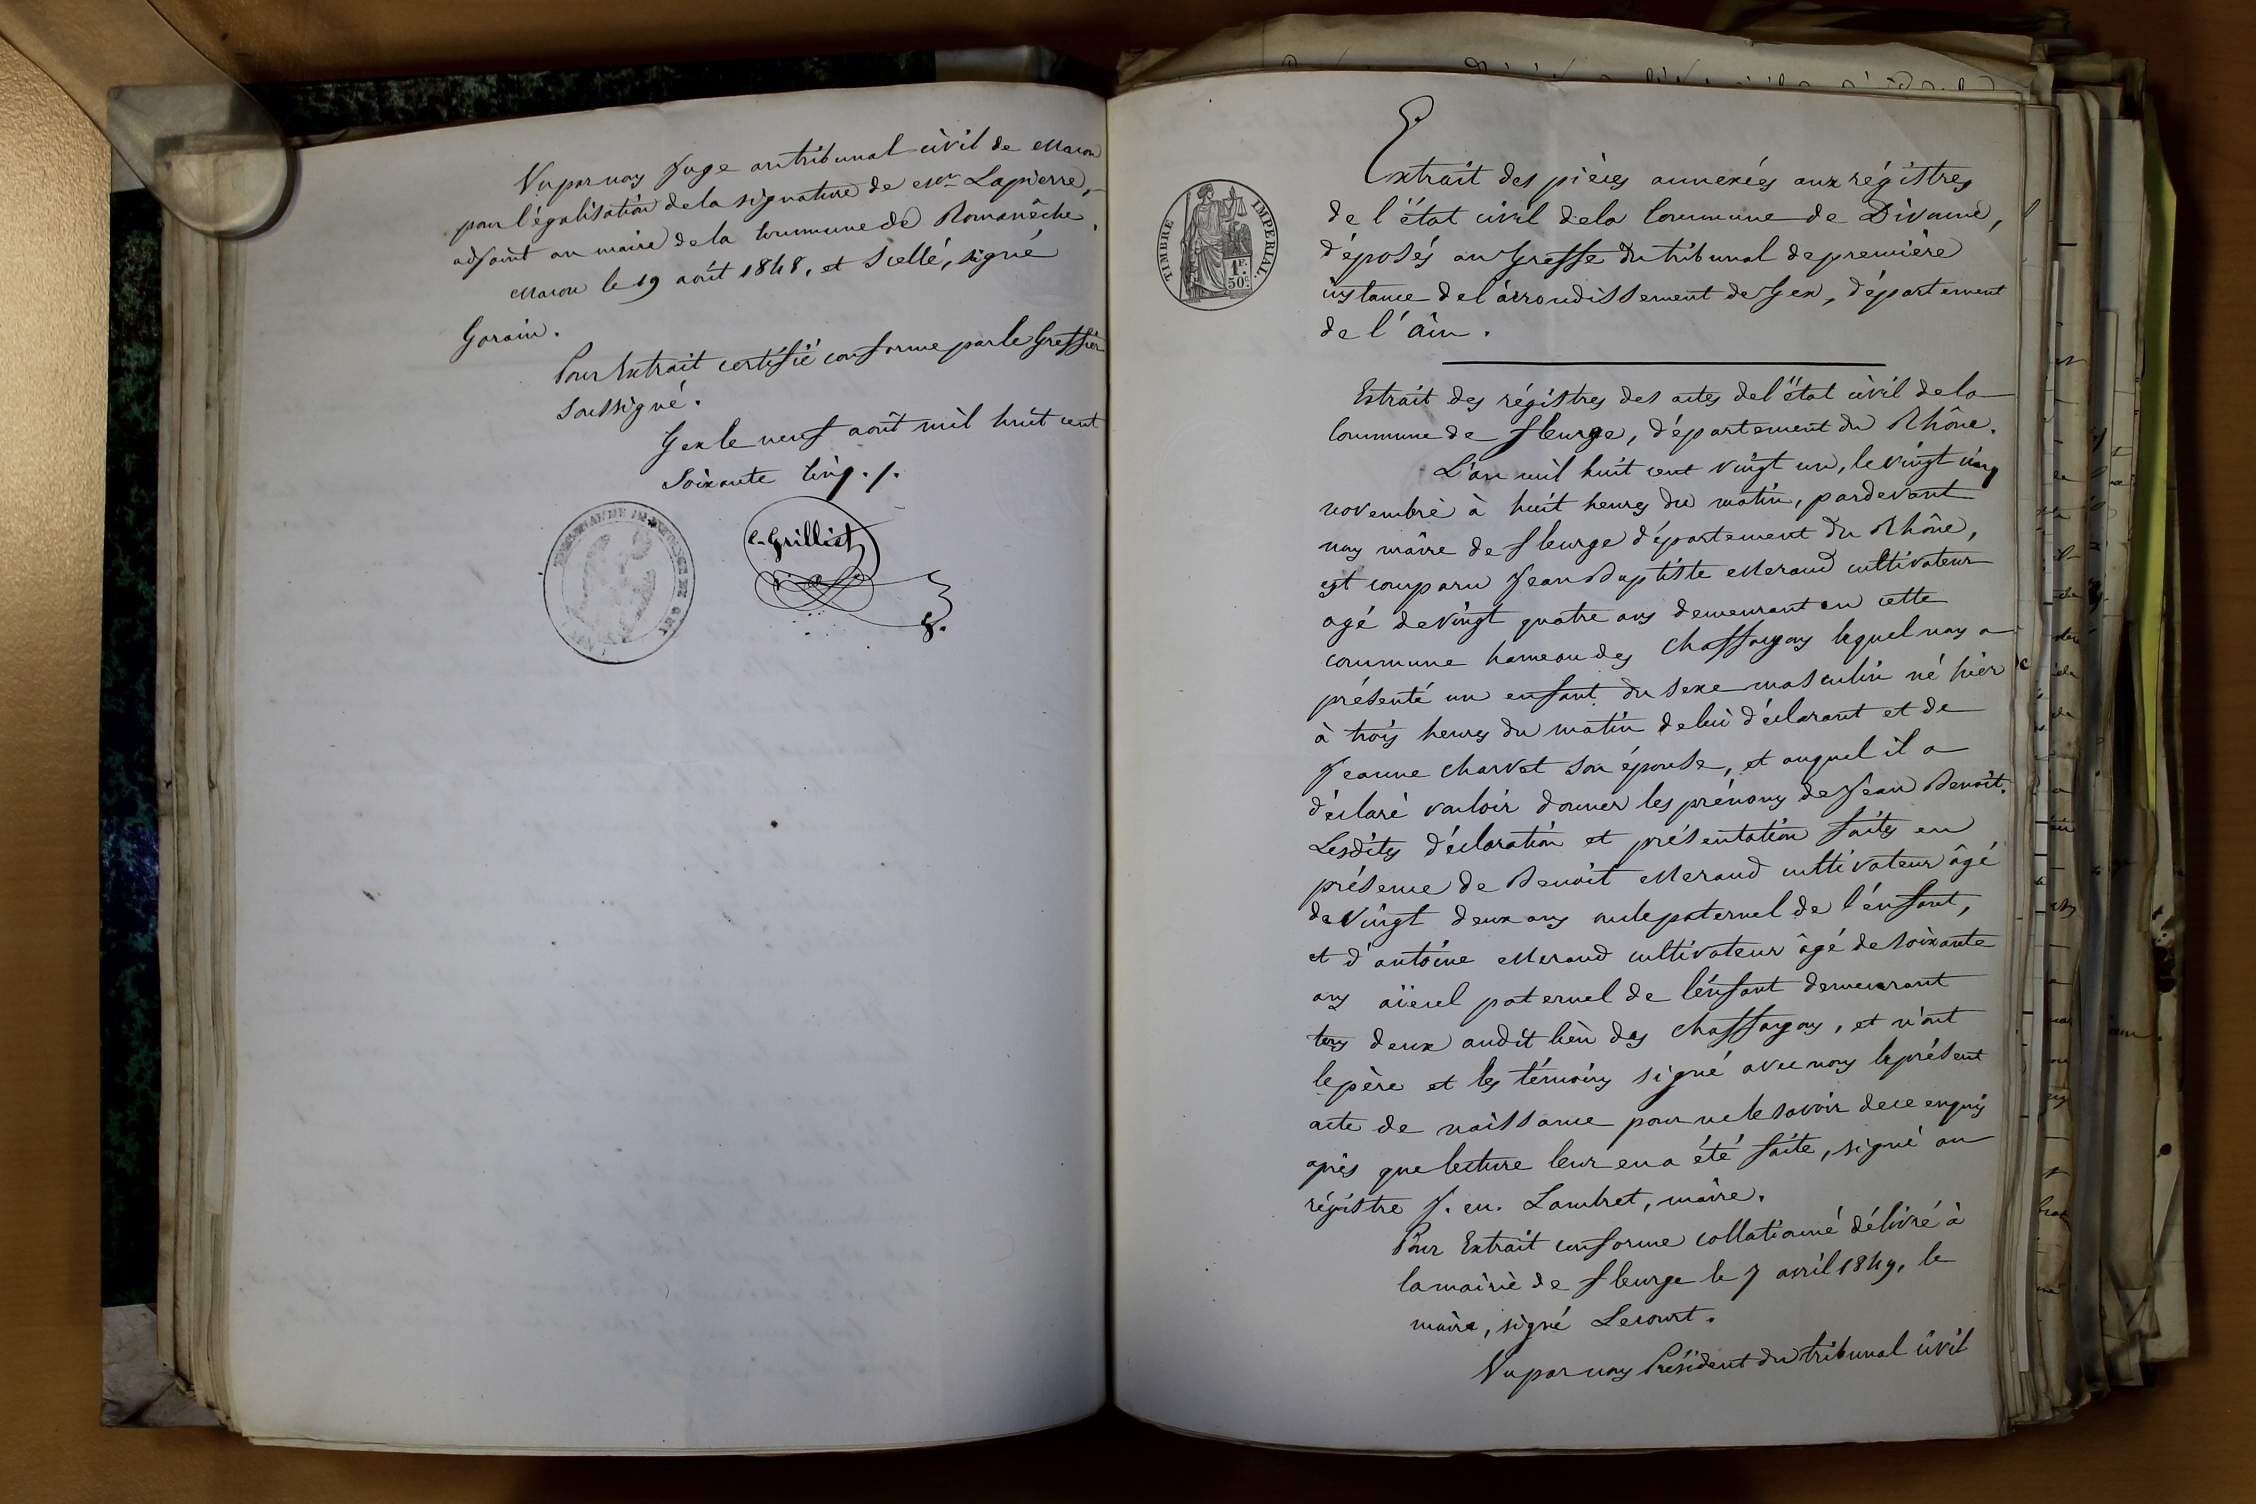 Vu par nous Juge au tribunal civil de Macon
pour légalisation de la signature de Mr Lapierre,
adjoint au maire de la commune de Romanêche.
Macon le 19 août 1848, et scellé, signé
Garain.
Pour Extrait certifié conforme par le Greffier
soussigné.
Gex le neuf août mil huit cent
soixante cinq./.
C. Grilliet
Extrait des pièces annexées aux régistres
de l'état civil de la Commune de Divonne,
déposés au Greffe du tribunal de première
instance de l'arrondissement de Gex, département
de l'ain.
TIMBRE IMPERIAL
1F.
50c.
Extrait des régistres des actes de l'état civil de la
commune de fleurge, département du Rhône.
L'an mil huit cent vingt un, le vingt cinq
novembre à huit heures du matin, pardevant
nous maire de fleurge département du Rhône,
est comparu Jean Baptiste Meraud cultivateur
agé de vingt quatre ans demeurant en cette
commune hameau des Chaffangeons lequel nous a
présenté un enfant du sexe masculin né hier
à trois heures du matin de lui déclarant et de
Jeanne Charvet son épouse, et auquel il a
déclaré vouloir donner les prénoms de Jean Benoit.
Lesdites déclaration et présentation faites en
présence de Benoit Meraud cultivateur âgé
de vingt deux ans oncle paternel de l'enfant,
et d'antoine Meraud cultivateur âgé de soixante
ans aïeul paternel de l'enfant demeurant
tous deux audit lieu des , et n'ont
le père et les témoins signé avec nous le présent
acte de naissance pour ne le savoir de ce enquis
après que lecture leur en a été faite, signé au
régistre J. M. Lambret, maire.
Pour Extrait conforme collationné délivré à
la mairie de fleurge le 7 avril 1849, le
maire, signé Lecourt.
Vu par nous Président du tribunal civil